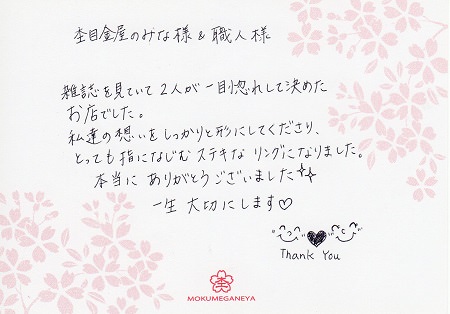 杢目金屋のみな様 & 職人様
雑誌を見ていて2人が一目惚れして決めた
お店でした。
私達の想いをしっかりと形にしてくださり、
とっても指になじむステキなリングになりました。
本当にありがとうございました
一生大切にします♡
Thank You
杢
MOKUMEGANEYA